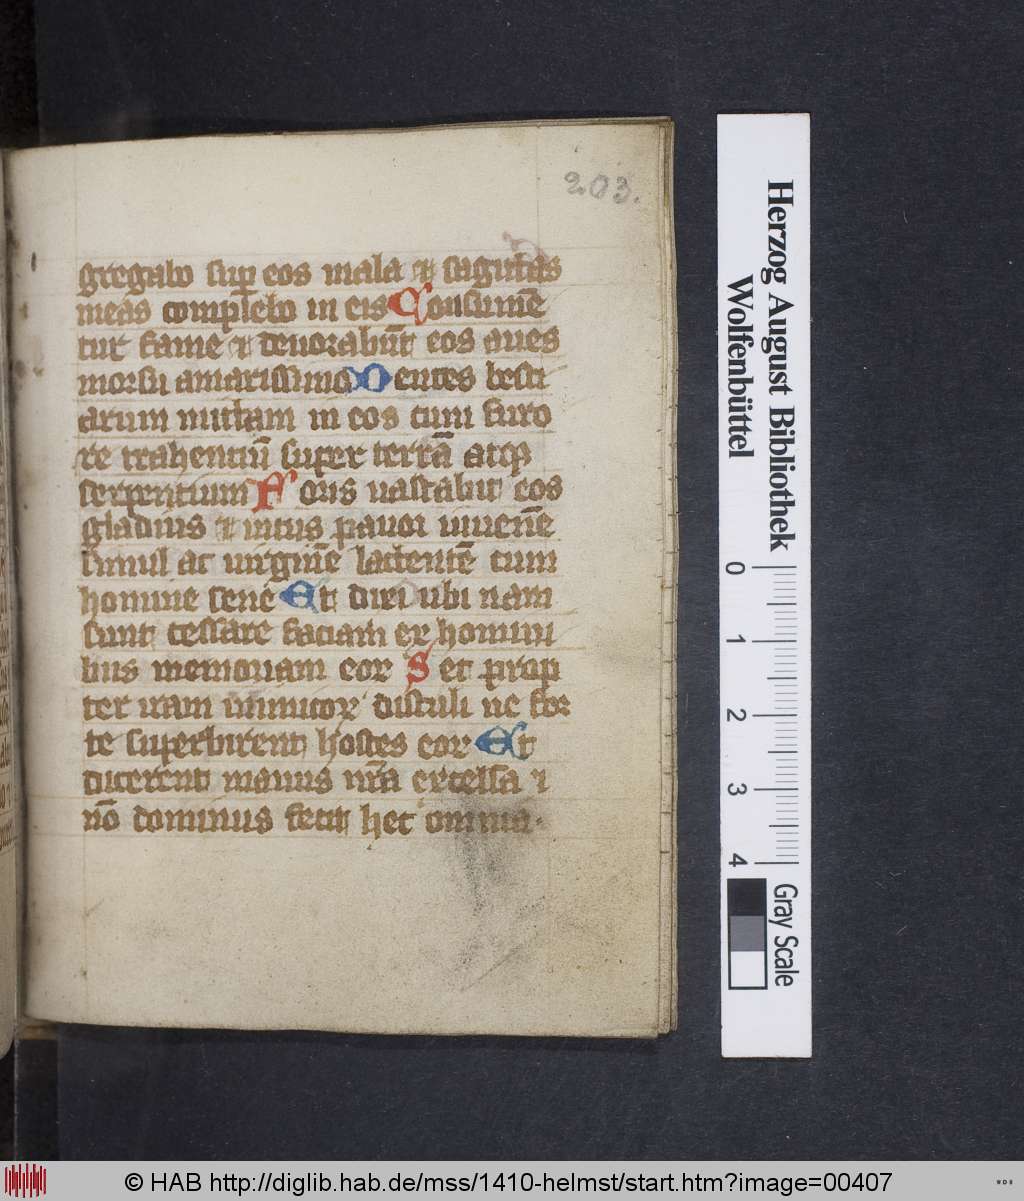 203.
gregabo sup eos mala & sagittas
meas complebo in eis Consumē
tur fame & deuorabūt eos aues
morsu amarissimo Dentes besti
arum mittam in eos cum furo
re trahentiū super terrā atqꝫ
serpentium Foris uastabit eos
gladius & intus pauor iuuenē
simul ac uirginē lactentē cum
homine sene Et dixi ubi nam
sunt cessare faciam ex homini
bus memoriam eoꝝ Set prop
ter iram inimicoꝝ distuli ne for
te superbirent hostes eoꝝ Et
dicerent manus nr̄a excelsa &
nō dominus fecit hec omnia.
Herzog August Bibliothek
Wolfenbüttel
0 1 2 3 4
Gray Scale
© HAB http://diglib.hab.de/mss/1410-helmst/start.htm?image=00407